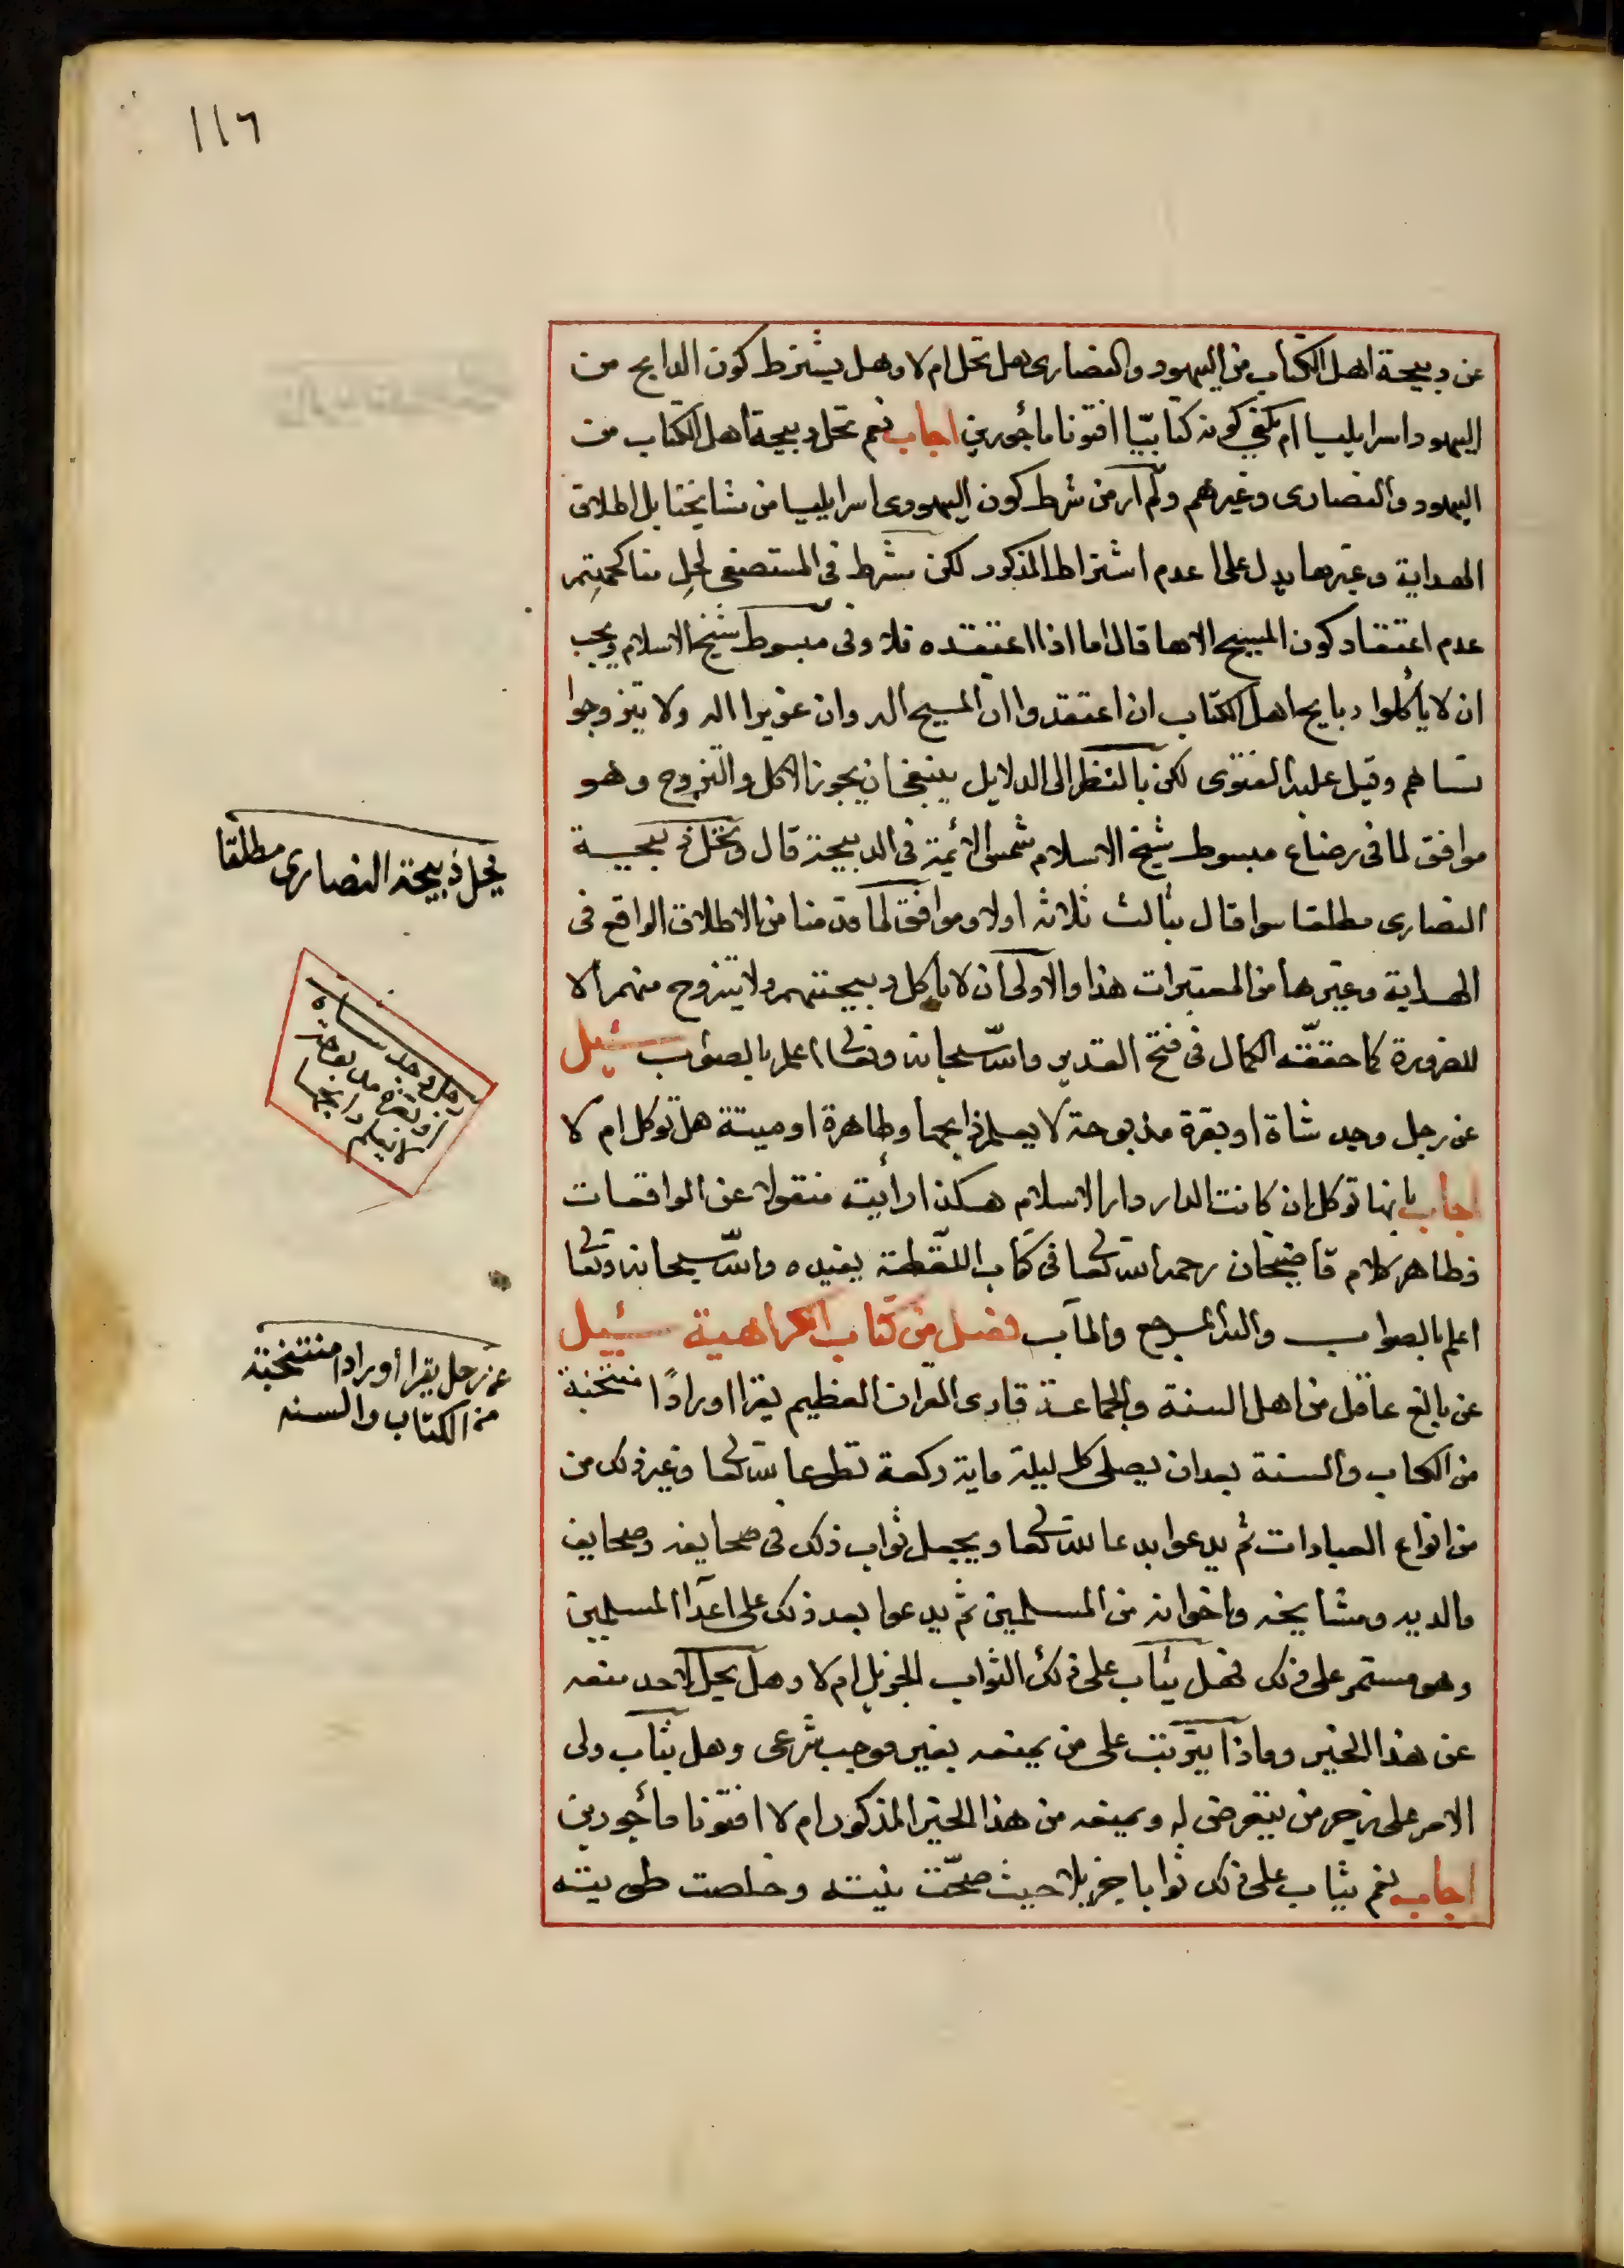 ١١٦
عن دبيحة اهل الكتاب من اليهود والنصارى هل تحل ام لا وهل يشترط كون الدابح من
اليهود اسرايليا ام يكفي كونه كتابيّا افتونا مأجورين اجاب نعم تحل دبيحة اهل الكتاب من
اليهود والنصارى وغيرهم ولم آر من شرط كون اليهودى اسرايليا من مشايخنا بل اطلاق
الهداية وغيرها يدل على عدم اشتراط المذكور لكن شرط فى المستصفى لحل مناكحتهم
عدم اعتقاد كون المسيح الاها قال اما اذا اعتقده فلا وفى مبسوط شيخ الاسلام ويجب
ان لا يأكلوا دبايح اهل الكتاب ان اعتقدوا ان المسيح اله وان عزيرا اله ولا يتزوجوا
نساهم وقيل عليه الفتوى لكن بالنظر الى الدلايل ينبغى ان يجوز الاكل والتزوج وهو
موافق لما فى رضاع مبسوط شيخ الاسلام شمس الائمة فى الدبيحة قال وتحل ذبيحة
النصارى مطلقا سوا قال بثالث ثلاثه اولا وموافق لما قدمنا من الاطلاق الواقع فى
الهداية وغيرها من المعتبرات هذا والاولى ان لا ياكل دبيحتهم ولا يتزوج منهم الا
للضرورة كما حققه الكمال فى فتح القدير والله سبحانه وتعالى اعلم بالصواب سئيل
عن رجل وجد شاة او بقرة مذبوحة لا يعلم ذابحها وطاهرة او ميتة هل توكل ام لا
اجاب بانها توكل ان كانت الدار دار الاسلام هكذا رأيت منقولا عن الواقعات
وظاهر كلام قاضيخان رحمه الله تعالى فى كتاب اللقطة يفيده والله سبحانه وتعالى
اعلم بالصواب واليه المرجع والمآب فصل من كتاب الكراهية سئيل
عن بالغ عاقل من اهل السنة والجماعة قارى القران العظيم يقرا اورادًا منتخبة
من الكتاب والسنة بعد ان يصلى كل ليلة ماية ركعة تطوعا لله تعالى وغير ذلك من
من انواع العبادات ثم يدعو بدعا لله تعالى ويجعل ثواب ذلك فى صحايفه وصحايف
والديه ومشايخه واخوانه من المسلمين ثم يدعوا بعد ذلك على اعدآ المسلمين
وهو مستمر على ذلك فهل يثاب على ذلك الثواب الجزيل ام لا وهل يحل لاحد منعه
عن هذا الخير وماذا يترتب على من يمنعه بغير موجب شرعى وهل يثاب ولى
الامر على زجر من يتعرض له ويمنعه من هذا الخير المذكور ام لا افتونا مأجورين
اجاب نعم يثاب على ذلك ثوابا جزيلا حيث صحّت نيته وخلصت طويته
يحل ذبيحة النصارى مطلقا
رجل وجد شاه
او بقرة مذبوحة
لا يعلم ذابحها
عن رجل يقرا أورادا منتخبة
من الكتاب والسنه